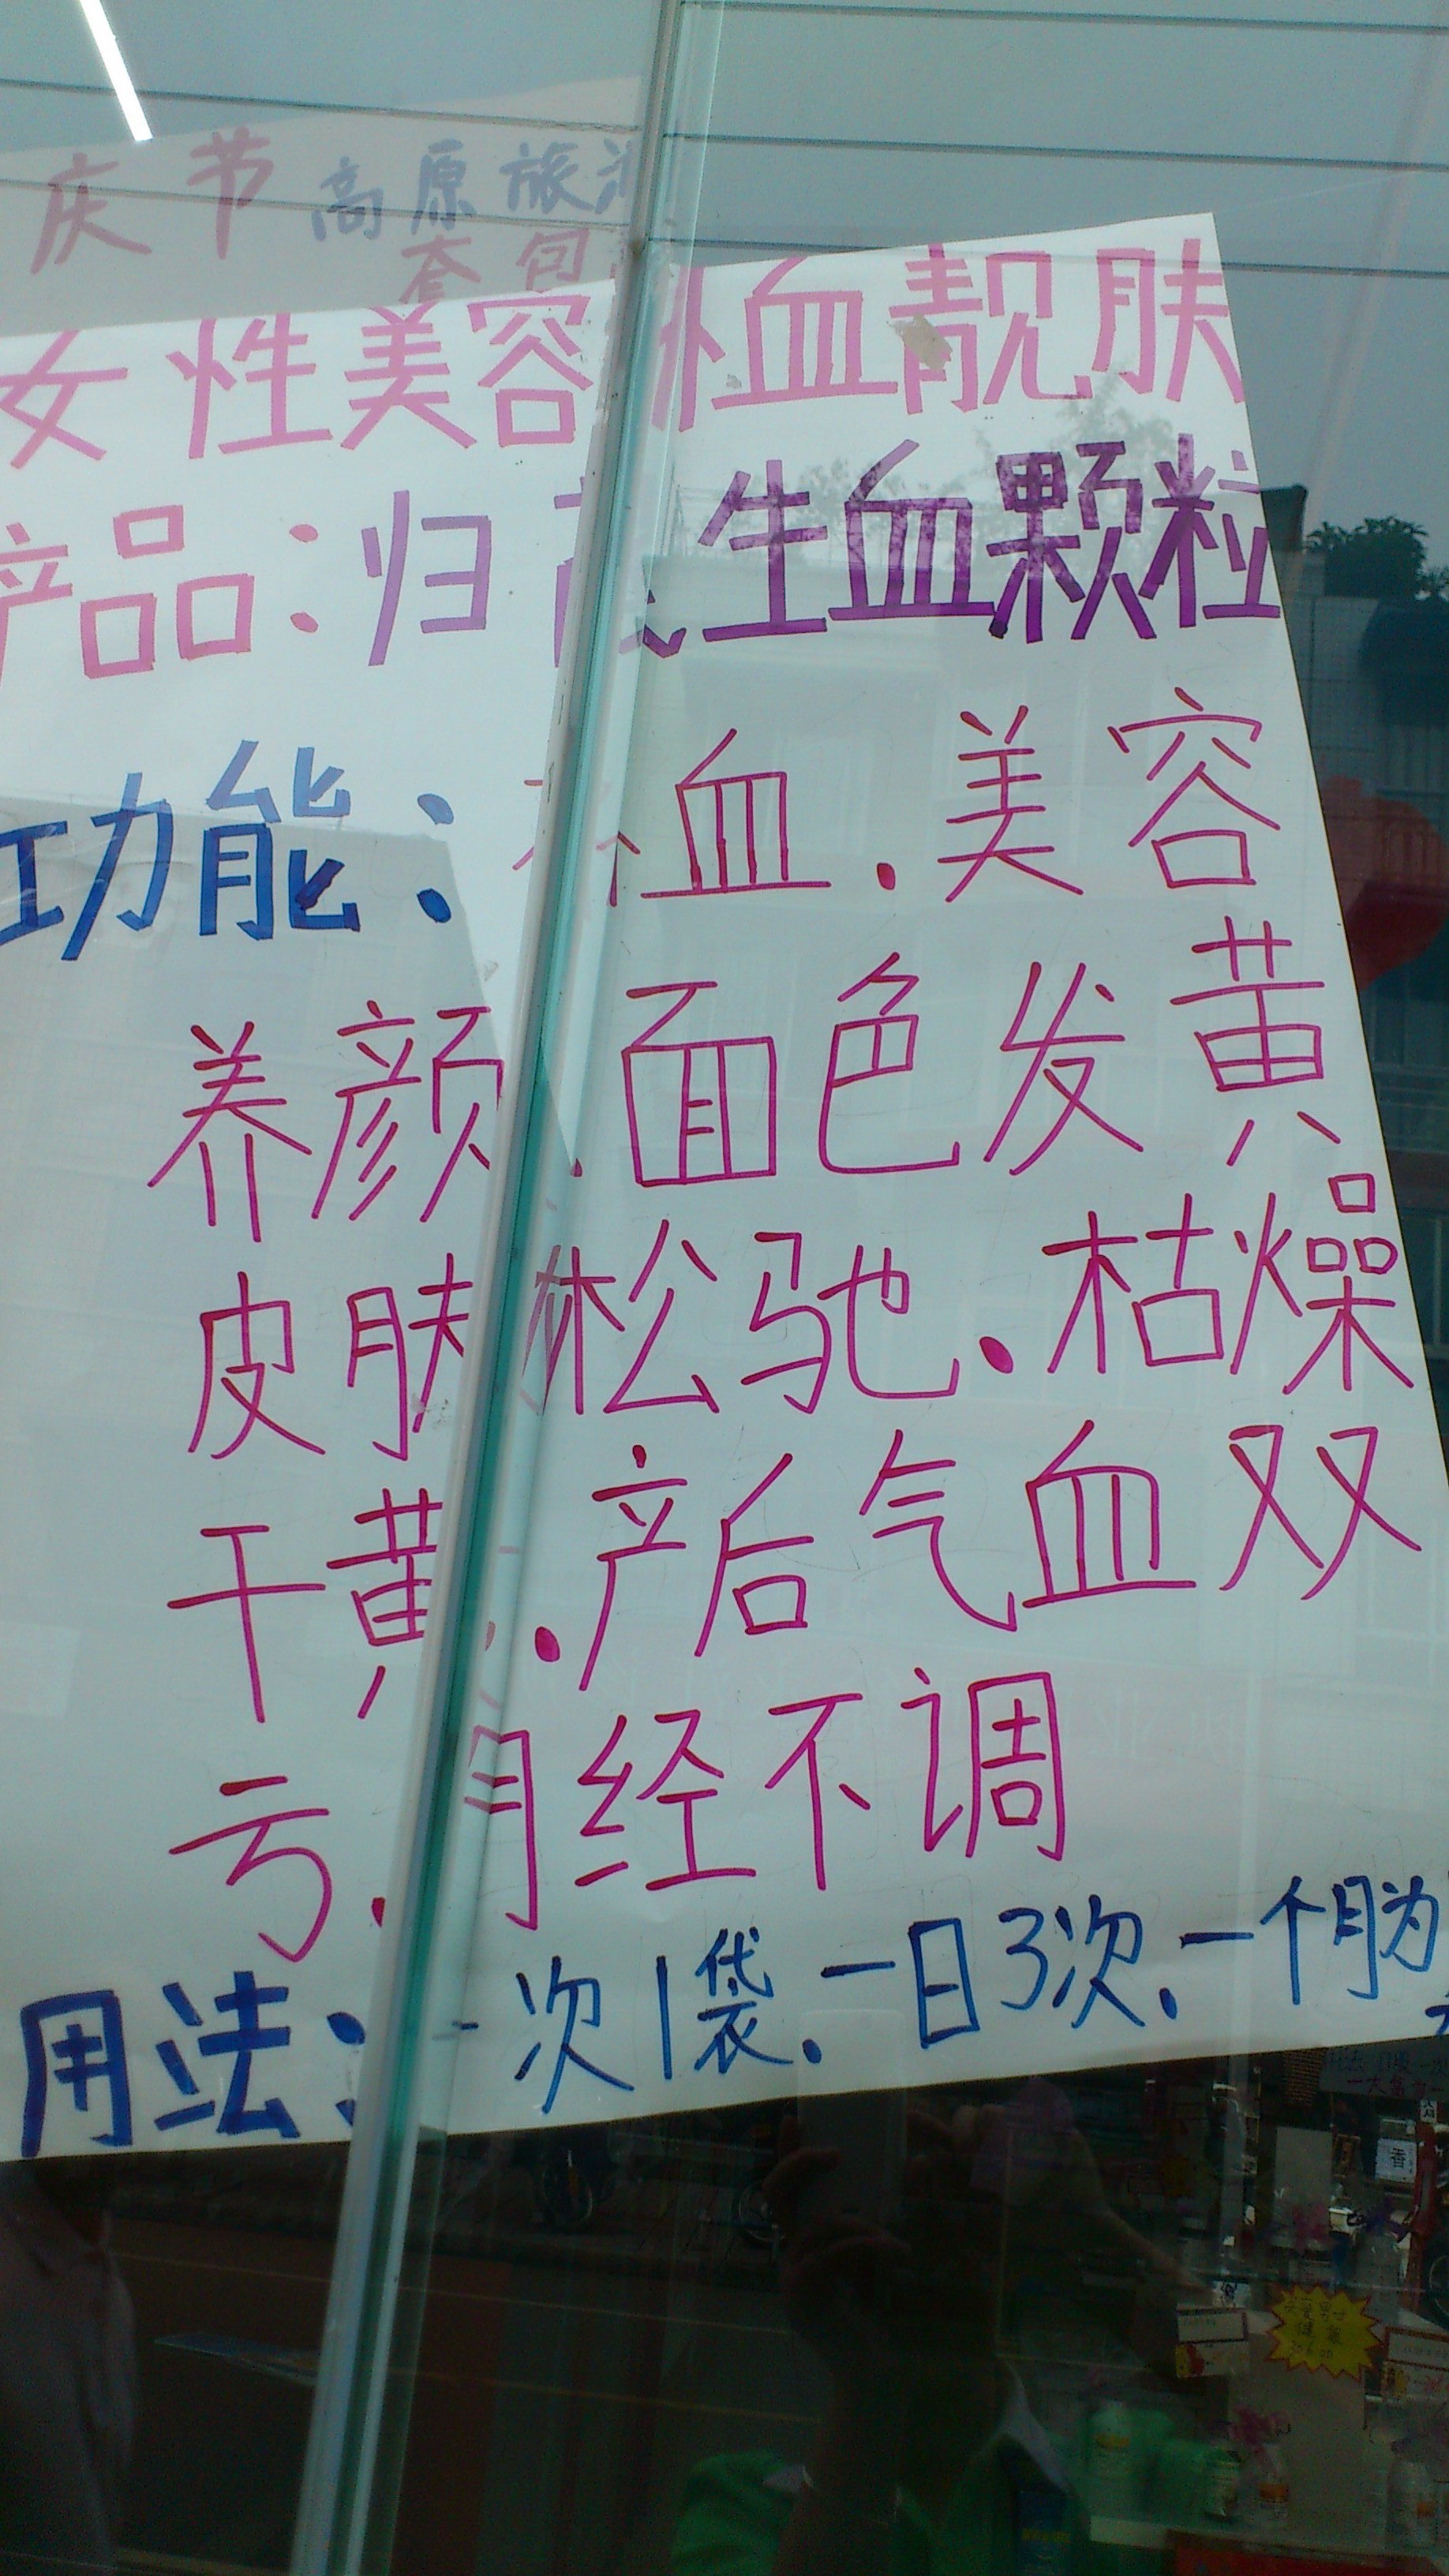 庆节 高原旅游
套包
女性美容补血靓肤
产品：归芪生血颗粒
功能：补血.美容
养颜.面色发黄
皮肤松驰.枯燥
干黄.产后气血双
亏.月经不调
用法：一次1袋.一日3次.一个月为